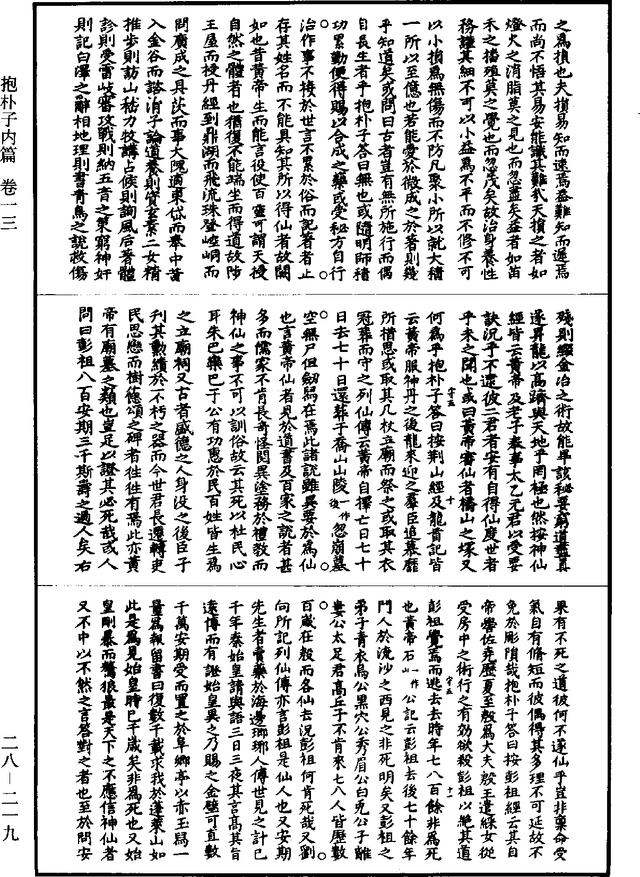 之爲損也夫損易知而速焉益難知而遲焉
而尚不悟其易安能識其難哉夫損之者如
燈火之消脂莫之見也而忽盡矣益者如苗
禾之播殖莫之覺也而忽茂矣故治身養性
務謹其細不可以小益爲不平而不修不可
以小損爲無傷而不防凡聚小所以就大積
一所以至億也若能愛於微成之於著則幾
乎知道矣或問曰古者豈有無所施行而偶
自長生者乎抱朴子答曰無也或隨明師積
功累勤便得賜以合成之藥或受秘方自行
治作事不接於世言不累於俗而記著者止
存其姓名而不能具知其所以得仙者故闕
如也昔黃帝生而能言役使百靈可謂天授
自然之體者也猶復不能端坐而得道故陟
王屋而授丹經到鼎湖而飛流珠登崆峒而
問廣成之具茨而事大隗適東岱而奉中黃
入金谷而諮涓子論道養則資玄素二女精
推步則訪山稽力牧講占候則詢風后著體
診則受雷岐審攻戰則納五音之策窮神奸
則記白澤之辭相地理則書青鳥之說救傷
殘則綴金冶之術故能畢該秘要窮道盡真
遂昇龍以高躋與天地乎罔極也然按神仙
經皆云黃帝及老子奉事太乙元君以受要
訣況乎不逮彼二君者安有自得仙度世者
乎未之聞也或曰黃帝審仙者橋山之塚又
何爲乎抱朴子答曰按荆山經及龍首記皆
云黃帝服神丹之後龍來迎之羣臣追慕靡
所措思或取其几杖立廟而祭之或取其衣
冠葬而守之列仙傳云黃帝自擇亡日七十
日去七十日還葬于喬山山陵一作後忽崩墓
空無尸但劔舄在焉此諸說雖異要於爲仙
也言黃帝仙者見於道書及百家之說者甚
多而儒家不肯長奇怪開異塗務於禮教而
神仙之事不可以訓俗故云其死以杜民心
耳朱邑欒巴于公有功惠於民百姓皆生爲
之立廟祠又古者盛德之人身沒之後臣子
刊其勳績於不朽之器而今世君長遷轉吏
民思戀而樹德頌之碑者往往有焉此亦黃
帝有廟墓之類也皇足以證其必死哉或人
問曰彭祖八百安期三千斯壽之過人矣右
果有不死之道彼何不遂仙乎豈非稟命受
氣自有脩短而彼偶得其多理不可延故不
免於彫隕哉抱朴子答曰按彭祖經云其自
帝嚳佐堯歷夏至殷爲大夫殷王遣綵女從
受房中之術行之有効欲殺彭祖以絕其道
彭祖覺焉而逃去去時年七八百餘非爲死
也黃帝石一作山公記云彭祖去後七十餘年
門人於流沙之西見之非死明矣又彭祖之
弟子青衣烏公黑穴公秀眉公白兔公子離
婁公太足君高丘子不肯來七八人皆歷數
百歲在殷而各仙去況彭祖何肯死哉又劉
向所記列仙傳亦言彭祖是仙人也又安期
先生者賣藥於海邊瑯琊人傳世見之計已
千年秦始皇請與語三日三夜其言高其旨
遠博而有證始皇異之乃賜之金璧可直數
千萬安期受而置之於阜鄉亭以赤玉舄一
量爲報留書曰復數千載求我於蓬萊山如
此是爲見始皇時已千歲矣非爲死也又始
皇剛暴而驁狠最是天下之不應信神仙者
又不中以不然之言答對之者也至於問安
抱朴子内篇 卷一三
二八—二一九